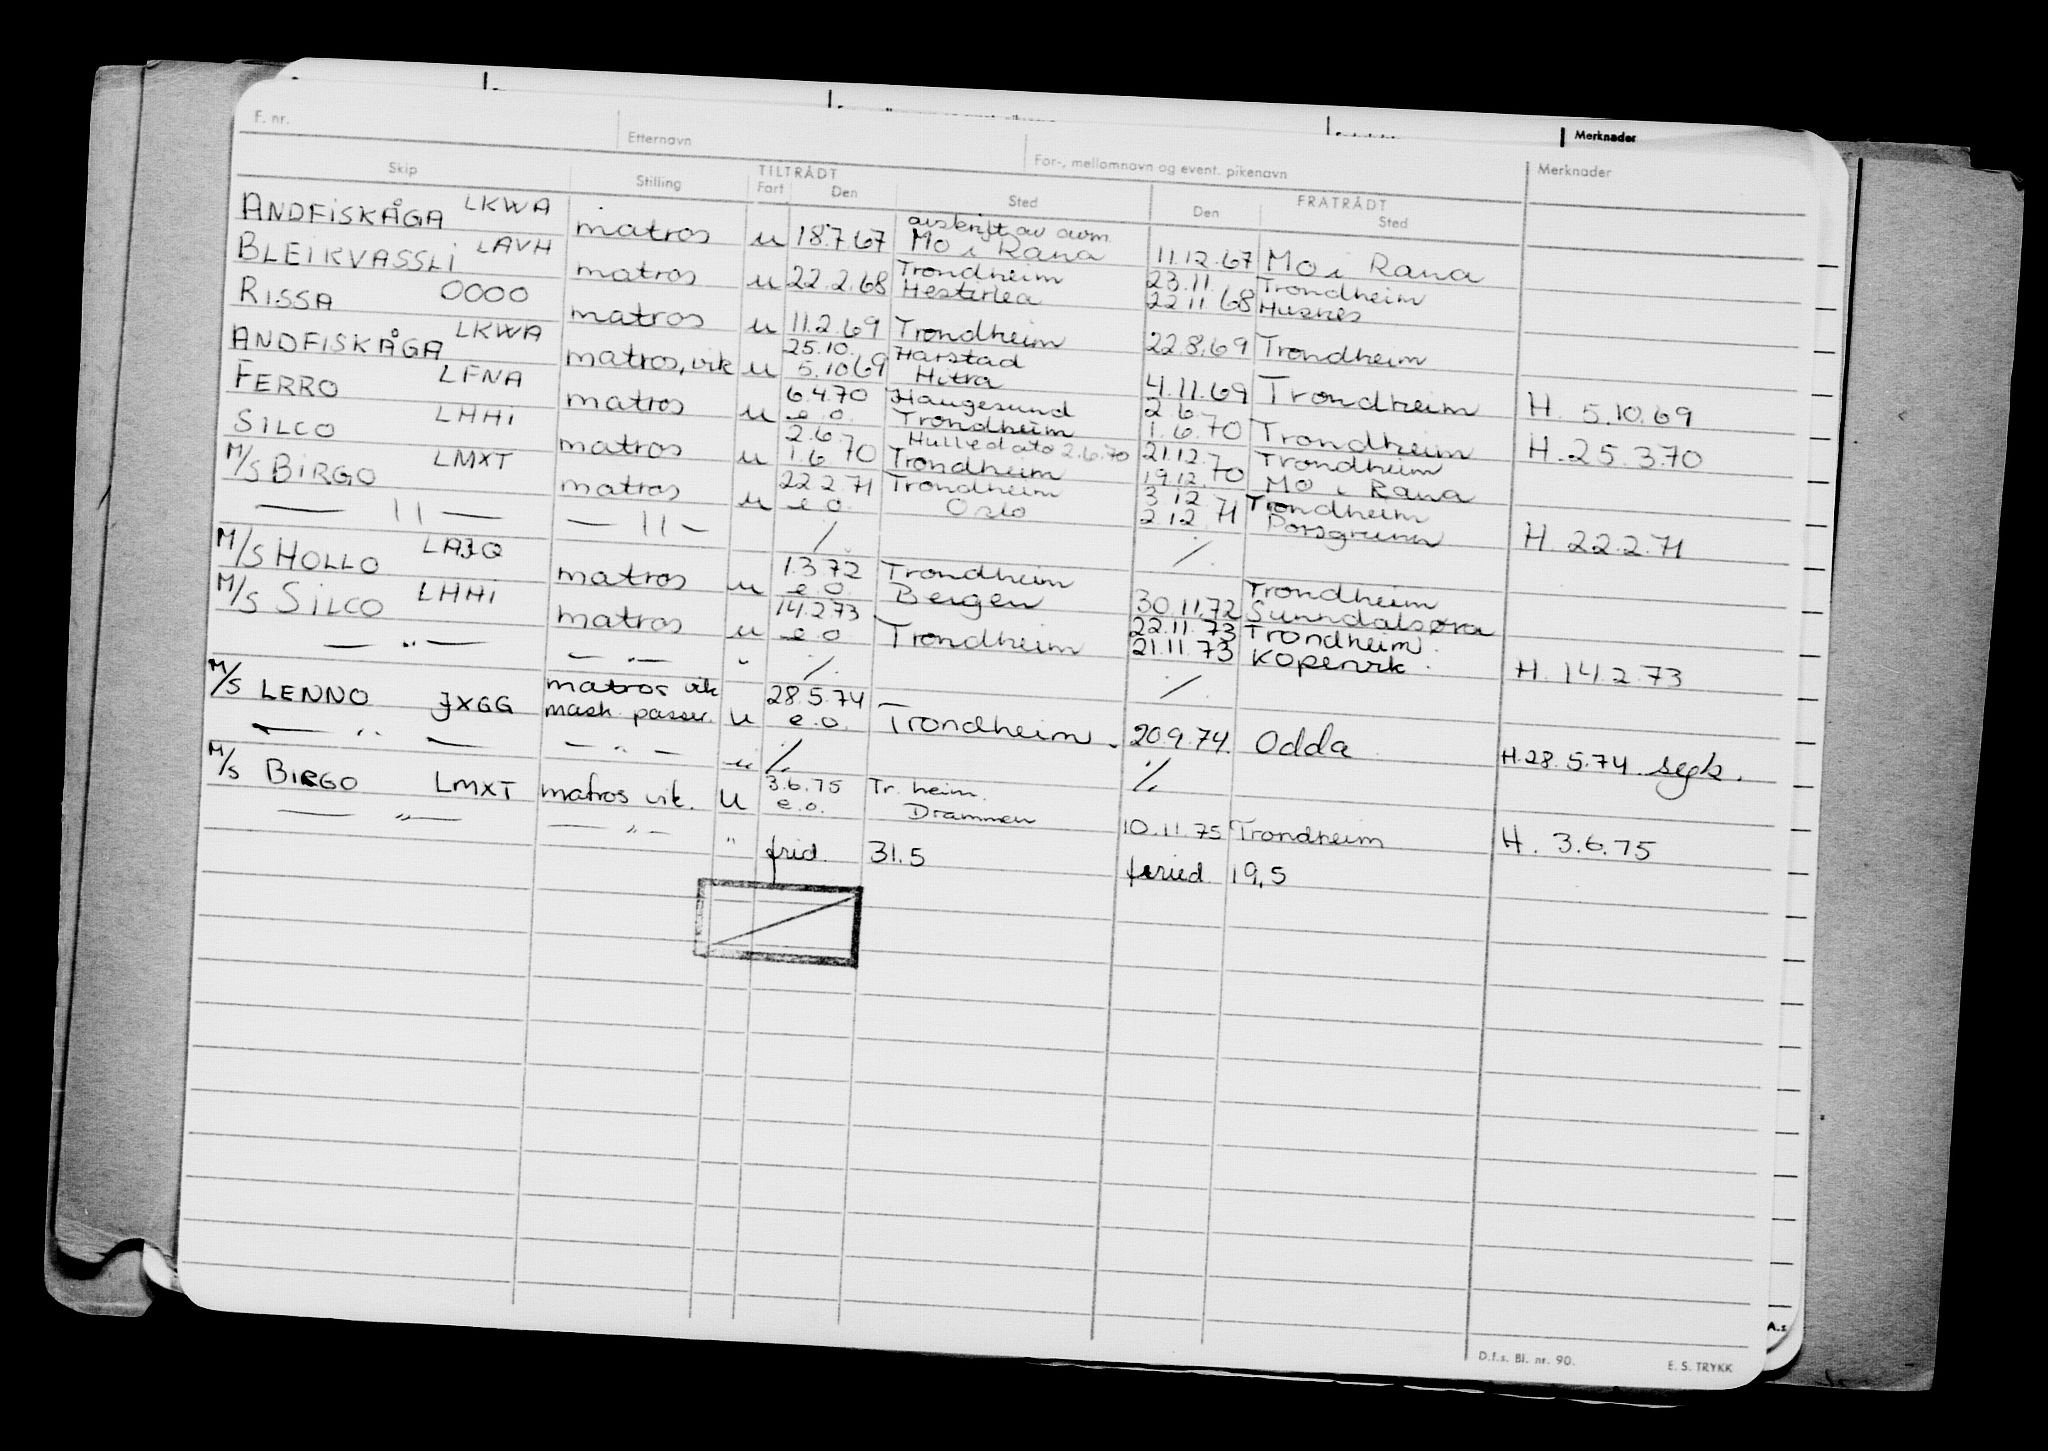 Merknader
F. nr.
Etternavn
For-, mellomnavn og event. pikenavn
Merknader
Skip
Stilling
TILTRÅDT
Fart
Den
Sted
FRATRÅDT
Den
Sted
ANDFISKÅGA LKWA matros u 18.7.67 avskrift av avm. Mo i Rana 11.12.67 Mo i Rana
BLEIKVASSLI LAVH matros u 22.2.68 Trondheim 23.11. 22.11.68 Trondheim
RISSA OOOO matros u 11.2.69 Trondheim 22.8.69 Trondheim
ANDFISKÅGA LKWA matros, vik u 25.10. 5.10 69 Harstad Hitra 4.11.69 Trondheim H. 5.10.69
FERRO LFNA matros u 6.4.70 e.o. Haugesund Trondheim 2.6. 1.6.70 Trondheim H. 25.3.70
SILCO LHHI matros u 2.6. 1.6 70 Hulledato 2.6.70 Trondheim 21.12. 19.12.70 Trondheim Mo i Rana
M/S BIRGO LMXT matros u 22.2.71 e.o. Trondheim Oslo 3.12. 2.12.71 Trondheim Porsgrunn H. 22.2.71
— 11 — — 11 — / /.
M/S HOLLO LAJQ matros u 1.3.72 e.o. Trondheim Bergen 30.11.72 Trondheim Sunndalsøra
M/S SILCO LHHI matros u 14.2.73 e.o Trondheim 22.11.73 21.11.73 Trondheim. Kopervik. H. 14.2.73
— " — — " — " /. /.
M/S LENNO JXGG matros vik mask. passer. u 28.5.74 e.o. Trondheim. 20.9.74. Odda H.28.5.74 segk.
— " — — " — " /. /.
M/S BIRGO LMXT matros vik. u 3.6.75 e.o. Tr. heim. Drammen 10.11.75 Trondheim H. 3.6.75
— " — — " — " frid. 31.5 feried 19,5
D.f.s. Bl. nr. 90.
E. S. TRYKK
A.s